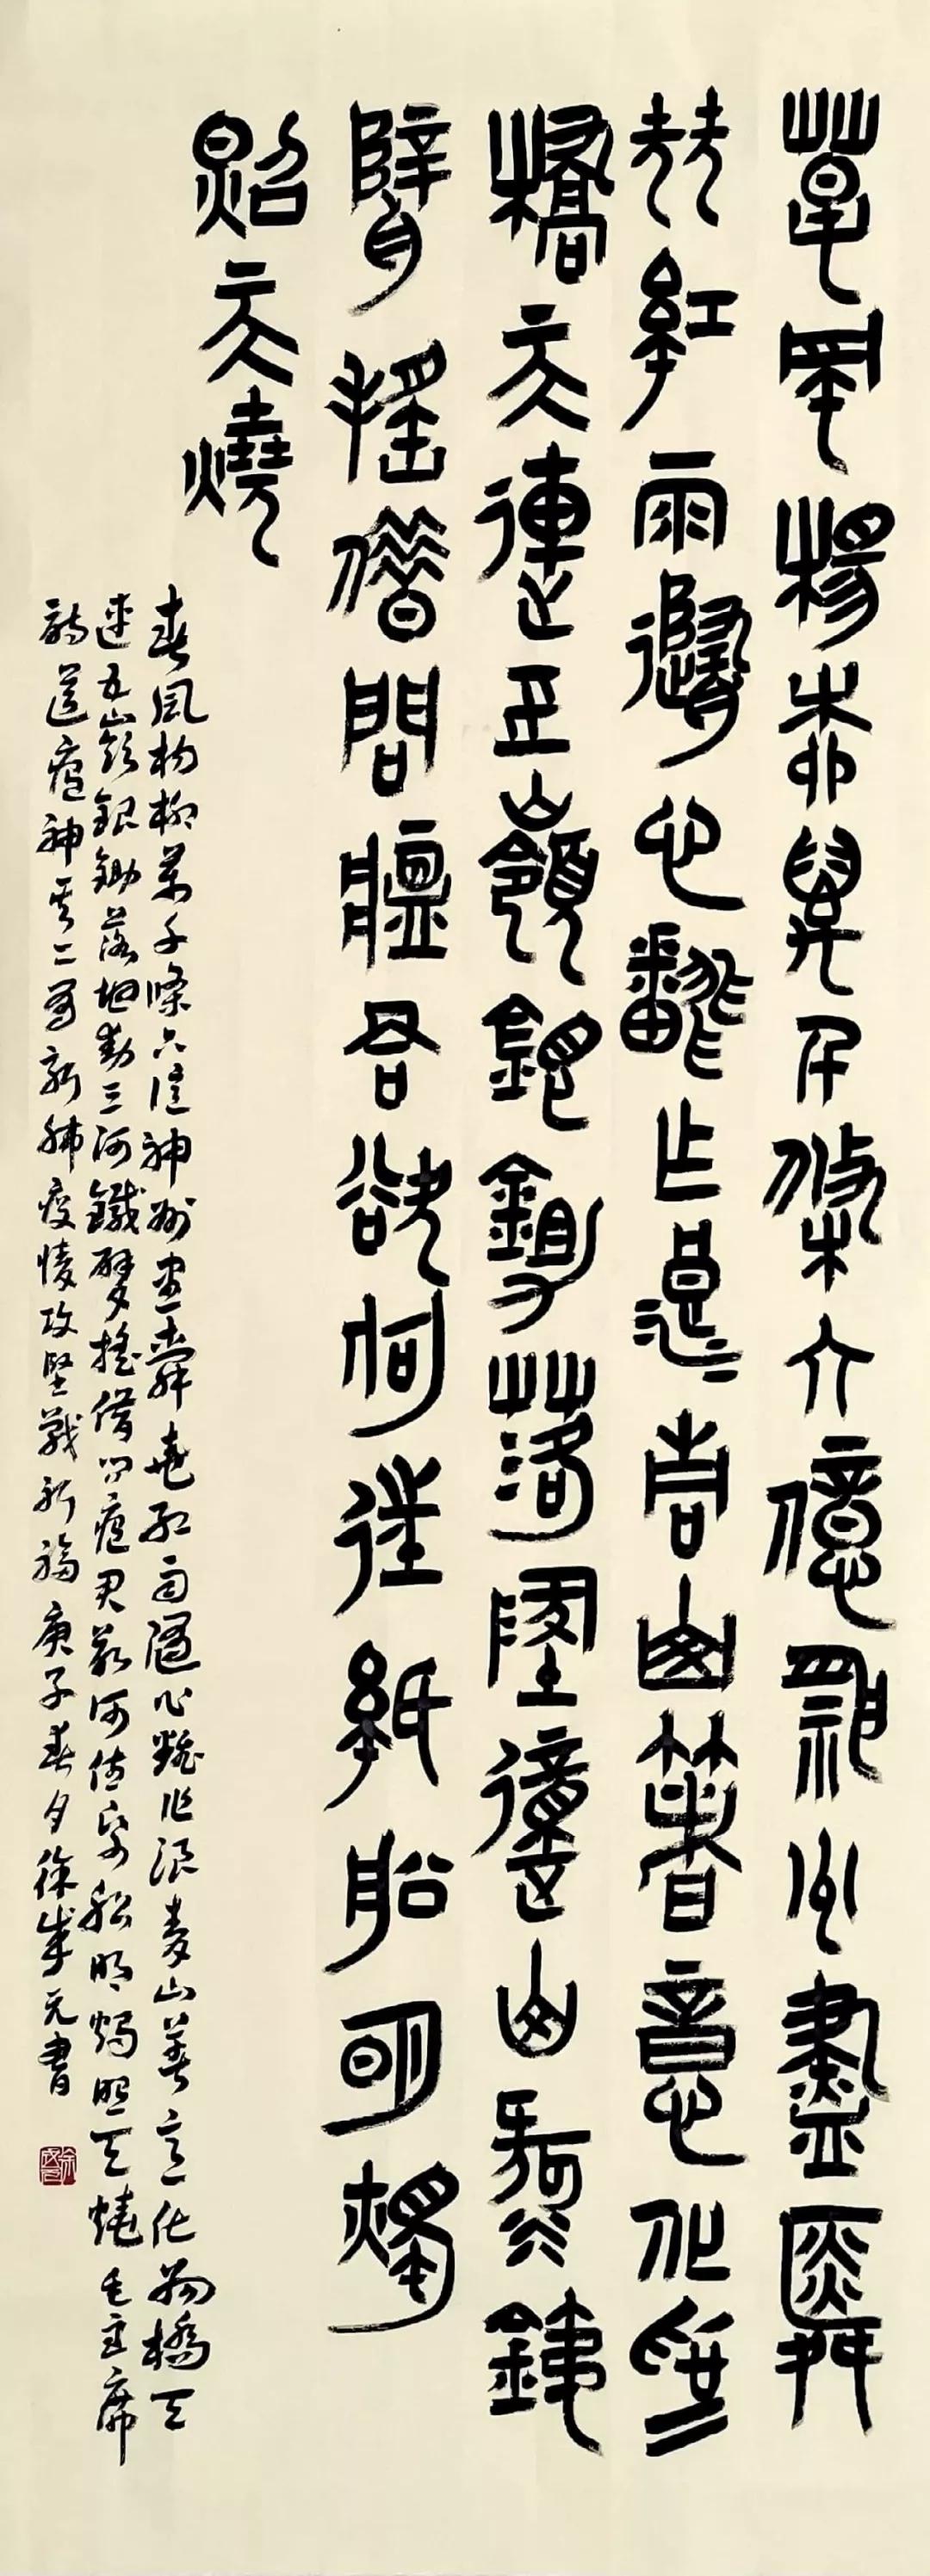 春風楊柳萬千條六億神州盡舜
堯紅雨隨心翻作浪青山著意化為
橋天連五嶺銀鋤落地動山河鐵
臂搖借問瘟君欲何往紙船明燭
照天燒
春風楊柳萬千條六億神州盡舜堯紅雨隨心翻作浪青山著意化為橋天
連五嶺銀鋤落地動三河鐵臂搖借問瘟君欲何往紙船明燭照天燒毛主席
詩送瘟神其二寫新肺疫情攻堅戰祈福庚子春夕徐成元書